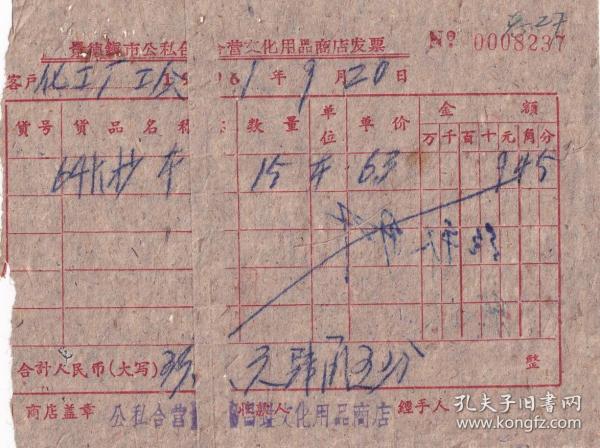 景德鎮市公私合 合营文化用品商店发票
№ 0008237
客戶 化工厂工会 1961年9月20日
貨号 貨品名称 数量 单位 单价 金額
万 千 百 十 元 角 分
64K抄本 15 本 63 9 4 5
合計人民币(大写) 玖 元肆角五分 整
商店盖章 收款人 經手人
公私合营 文化用品商店
孔夫子旧书网